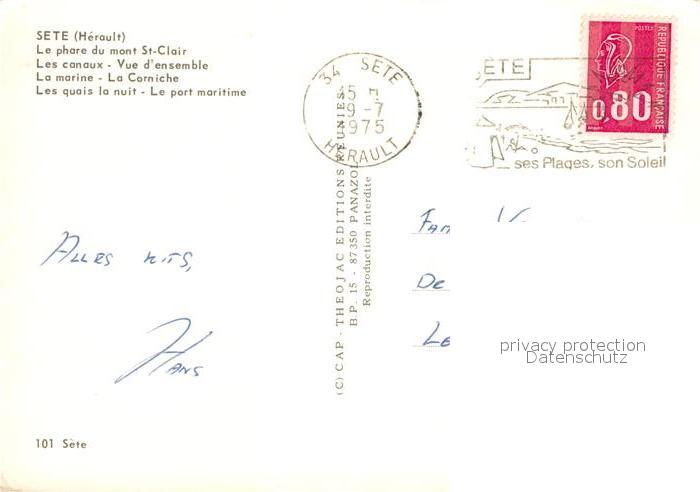 SETE (Hérault)
Le phare du mont St-Clair
Les canaux - Vue d'ensemble
La marine - La Corniche
Les quais la nuit - Le port maritime
34 SETE
9 -7
1975
HERAULT
SETE
ses Plages, son Soleil
POSTES
REPUBLIQUE FRANÇAISE
0,80
(C) CAP - THEOJAC EDITIONS REUNIES
B.P. 15 - 87350 PANAZOL
Reproduction interdite
ALLES
HANS
FAM
DE
LE
privacy protection
Datenschutz
101 Sète